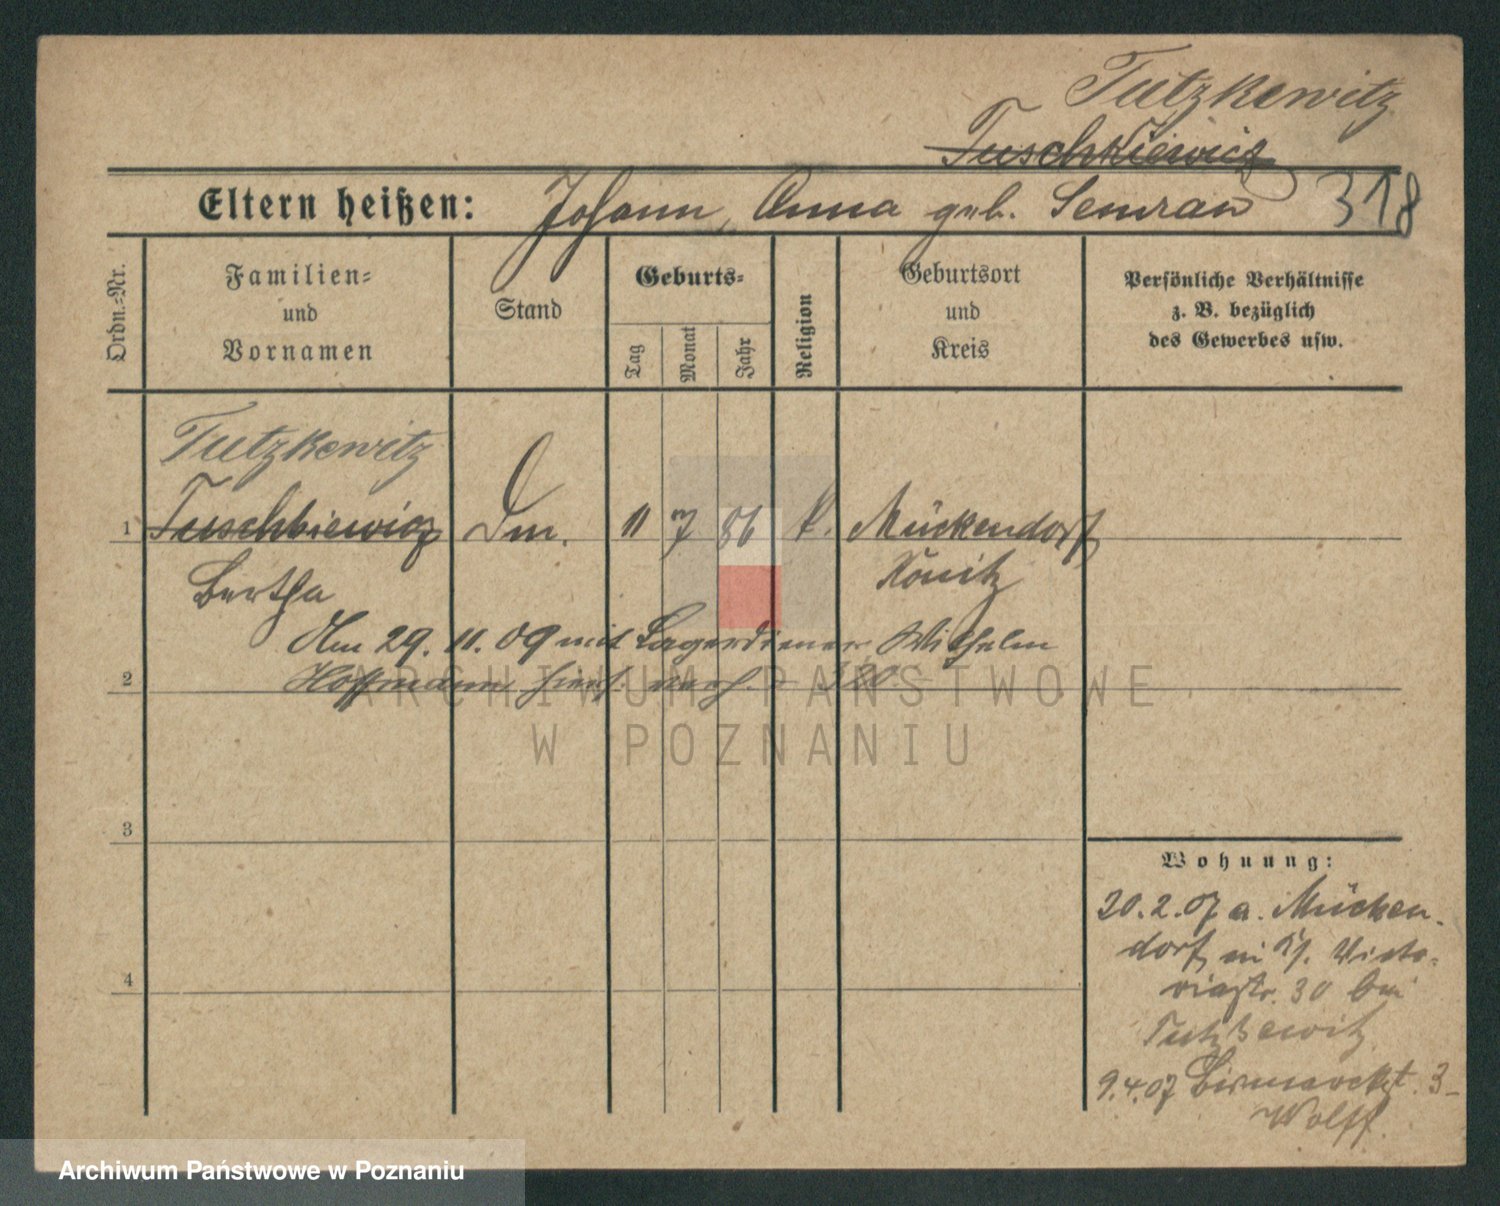 Tutzkewitz
Tuschkiewicz
Eltern heißen: Johann, Anna geb. Semrau 318
Ordn.-Nr.
Familien-
und
Vornamen
Stand
Geburts-
Tag
Monat
Jahr
Religion
Geburtsort
und
Kreis
Persönliche Verhältnisse
z. B. bezüglich
des Gewerbes usw.
Tutzkewitz
1 Tuschkiewicz Dm. 11 7 86 k. Mückendorf
Bertha Könitz
Am 29. 11. 09 mit Lagerdiener Wilhelm
2 Hoffmann hier verh.
ARCHIWUM PAŃSTWOWE
W POZNANIU
3
4
Wohnung:
20.2.07 a. Mücken-
dorf in Victo-
riastr. 30 bei
Tutzkewitz
9.4.07 Bismarckst. 3
Wolff.
Archiwum Państwowe w Poznaniu